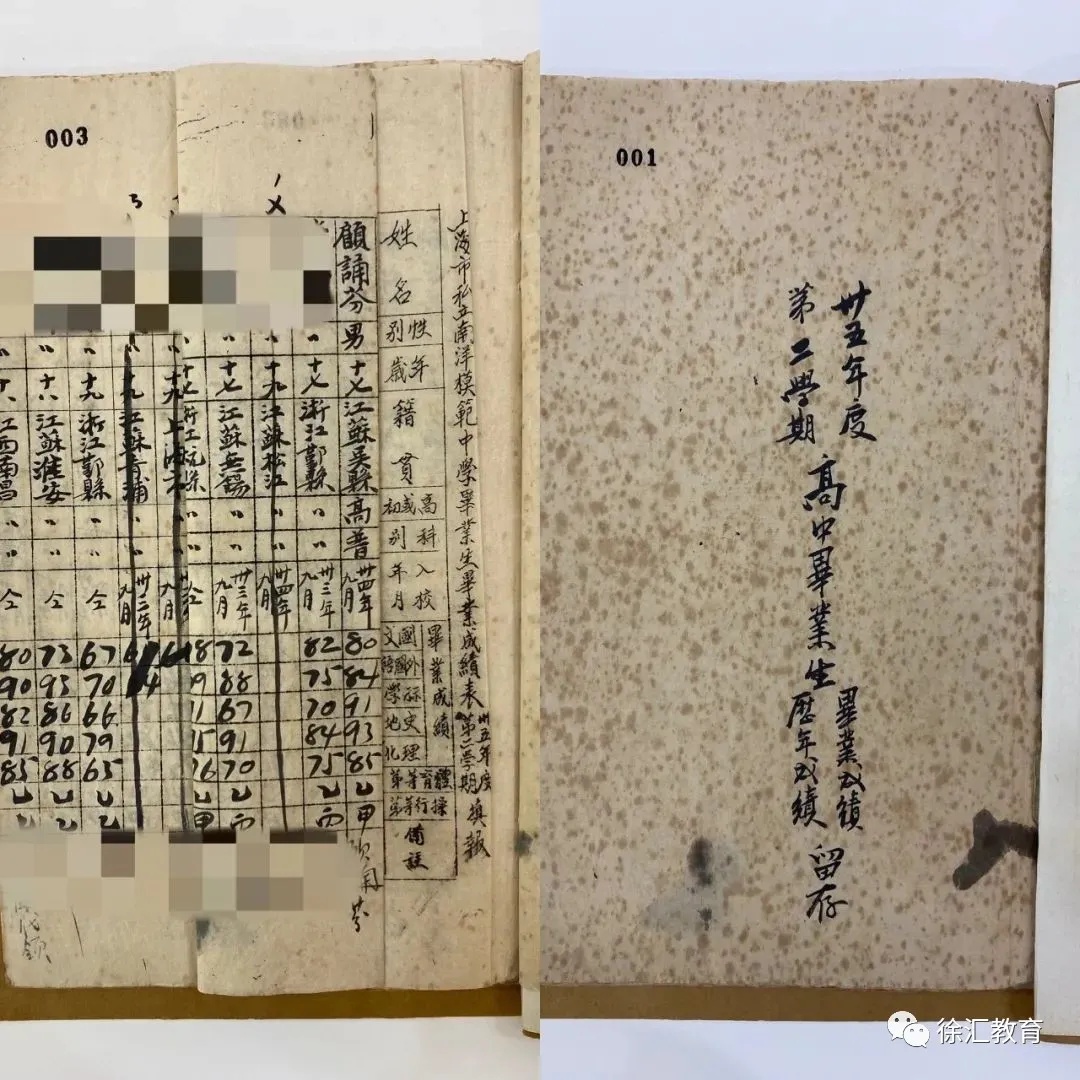 003
上海市私立南洋模範中學畢業生畢業成績表
卅五年度
第二學期
填報
姓名
性別
年歲
籍貫
高或初
科別
入校年月
畢業成績
國文
外國語
數學
史地
理化
體育等第
操行等第
備註
顧誦芬
男
十七
江蘇吳縣
高
普
卅四年九月
80
84
91
93
85
乙
甲
〃
十七
浙江鄞縣
〃
〃
卅三年九月
82
75
70
84
75
乙
丙
〃
十九
江蘇松江
〃
〃
卅四年九月
〃
十七
江蘇無錫
〃
〃
卅三年九月
72
88
67
91
70
乙
丙
〃
十九
浙江鄞縣
〃
〃
仝
67
70
66
79
65
乙
乙
〃
十八
江蘇淮安
〃
〃
仝
73
93
86
90
88
乙
乙
〃
江西南昌
〃
〃
仝
80
90
82
91
85
乙
乙
001
卅五年度
第二學期
高中畢業生
畢業成績
歷年成績
留存
徐汇教育